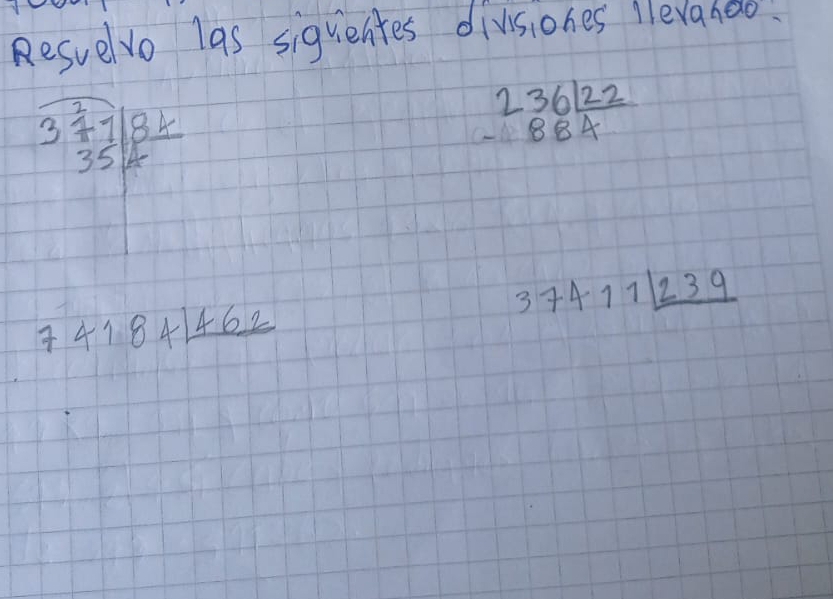 Resuelvo las siguientes divisiones llevando.
2
371|84 236|22
35|4 - 884
74184|462 37411|239